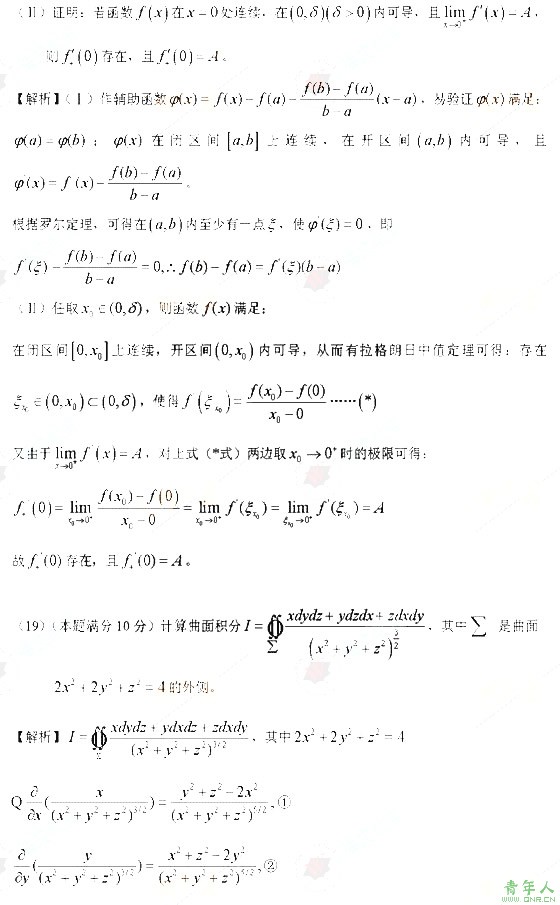 （II）证明：若函数 f(x) 在 x=0 处连续，在 (0,δ)(δ>0) 内可导，且 lim_{x→0⁺} f'(x)=A，
则 f₊'(0) 存在，且 f₊'(0)=A。
【解析】（I）作辅助函数 φ(x)=f(x)−f(a)−\frac{f(b)−f(a)}{b−a}(x−a)，易验证 φ(x) 满足：
φ(a)=φ(b)；φ(x) 在闭区间 [a,b] 上连续，在开区间 (a,b) 内可导，且
φ'(x)=f'(x)−\frac{f(b)−f(a)}{b−a}。
根据罗尔定理，可得在 (a,b) 内至少有一点 ξ，使 φ'(ξ)=0，即
f'(ξ)−\frac{f(b)−f(a)}{b−a}=0,∴f(b)−f(a)=f'(ξ)(b−a)
（II）任取 x₀∈(0,δ)，则函数 f(x) 满足：
在闭区间 [0,x₀] 上连续，开区间 (0,x₀) 内可导，从而有拉格朗日中值定理可得：存在
ξ_{x₀}∈(0,x₀)⊂(0,δ)，使得 f'(ξ_{x₀})=\frac{f(x₀)−f(0)}{x₀−0}……(*)
又由于 lim_{x→0⁺} f'(x)=A，对上式（*式）两边取 x₀→0⁺ 时的极限可得：
f₊'(0)=lim_{x₀→0⁺}\frac{f(x₀)−f(0)}{x₀−0}=lim_{x₀→0⁺} f'(ξ_{x₀})=lim_{ξ_{x₀}→0⁺} f'(ξ_{x₀})=A
故 f₊'(0) 存在，且 f₊'(0)=A。
（19）（本题满分10分）计算曲面积分 I=∯_Σ \frac{xdydz+ydzdx+zdxdy}{(x²+y²+z²)^{\frac{3}{2}}}，其中 ∑ 是曲面
2x²+2y²+z²=4 的外侧。
【解析】I=∯_Σ \frac{xdydz+ydxdz+zdxdy}{(x²+y²+z²)^{3/2}}，其中 2x²+2y²+z²=4
Q \frac{∂}{∂x}(\frac{x}{(x²+y²+z²)^{3/2}})=\frac{y²+z²−2x²}{(x²+y²+z²)^{5/2}},①
\frac{∂}{∂y}(\frac{y}{(x²+y²+z²)^{3/2}})=\frac{x²+z²−2y²}{(x²+y²+z²)^{5/2}},②
青年人
www.QNR.cn